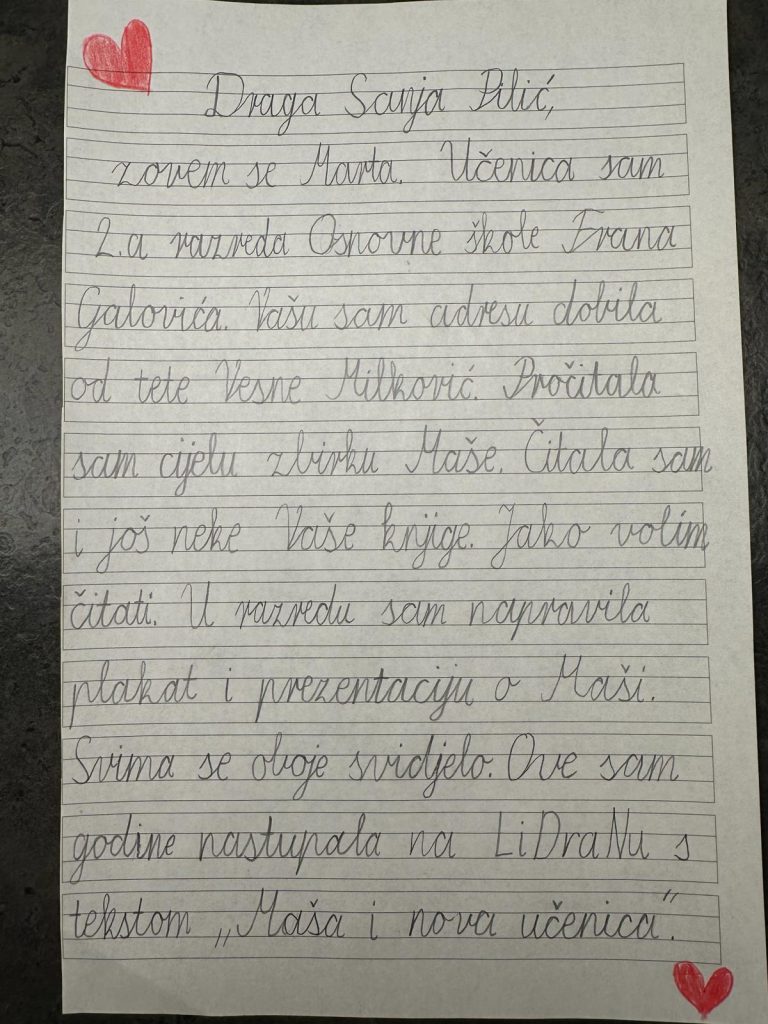 Draga Sanja Pilić,
zovem se Marta. Učenica sam
2.a razreda Osnovne škole Frana
Galovića. Vašu sam adresu dobila
od tete Vesne Milković. Pročitala
sam cijelu zbirku Maše. Čitala sam
i još neke Vaše knjige. Jako volim
čitati. U razredu sam napravila
plakat i prezentaciju o Maši.
Svima se oboje svidjelo. Ove sam
godine nastupala na LiDraNu s
tekstom „Maša i nova učenica”.